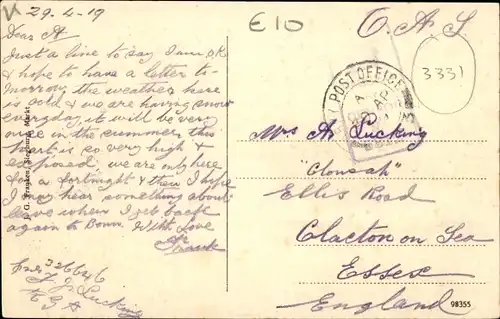 29.4.19
E10
O.A.S
3331
Dear A
Just a line to say I am OK
& hope to have a letter to-
morrow, the weather here
is cold & we are having snow
everyday it will be very
nice in the summer this
part is so very high &
exposed, we are only here
for a fortnight & then I hope
I may hear something about
leave when I get back
again to Bonn. With Love
Frank
326646
F. J. Lucking
RGA
POST OFFICE
Mrs A. Lucking
"Clonsah"
Ellis Road
Clacton on Sea
Essex
England
98355